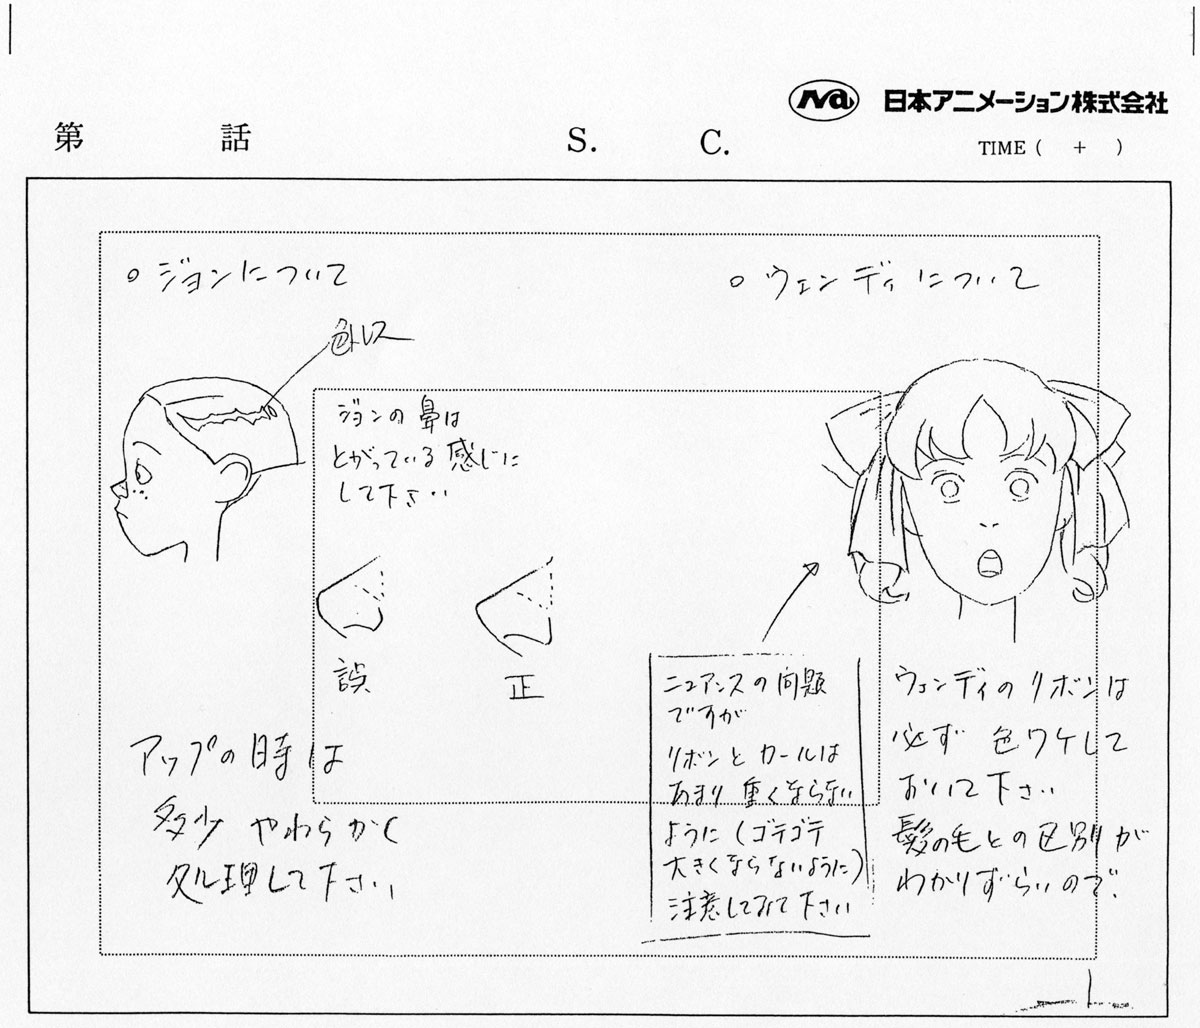 Na 日本アニメーション株式会社
第 話 S. C. TIME ( + )
○ ジョンについて
色トレス
ジョンの鼻は
とがっている感じに
して下さい
誤
正
アップの時は
多少 やわらかく
処理して下さい
○ ウェンディについて
ニュアンスの問題
ですが
リボンとカールは
あまり重くならない
ように(ゴテゴテ
大きくならないように)
注意してみて下さい
ウェンディのリボンは
必ず 色ワケして
おいて下さい
髪の毛との区別が
わかりずらいので.